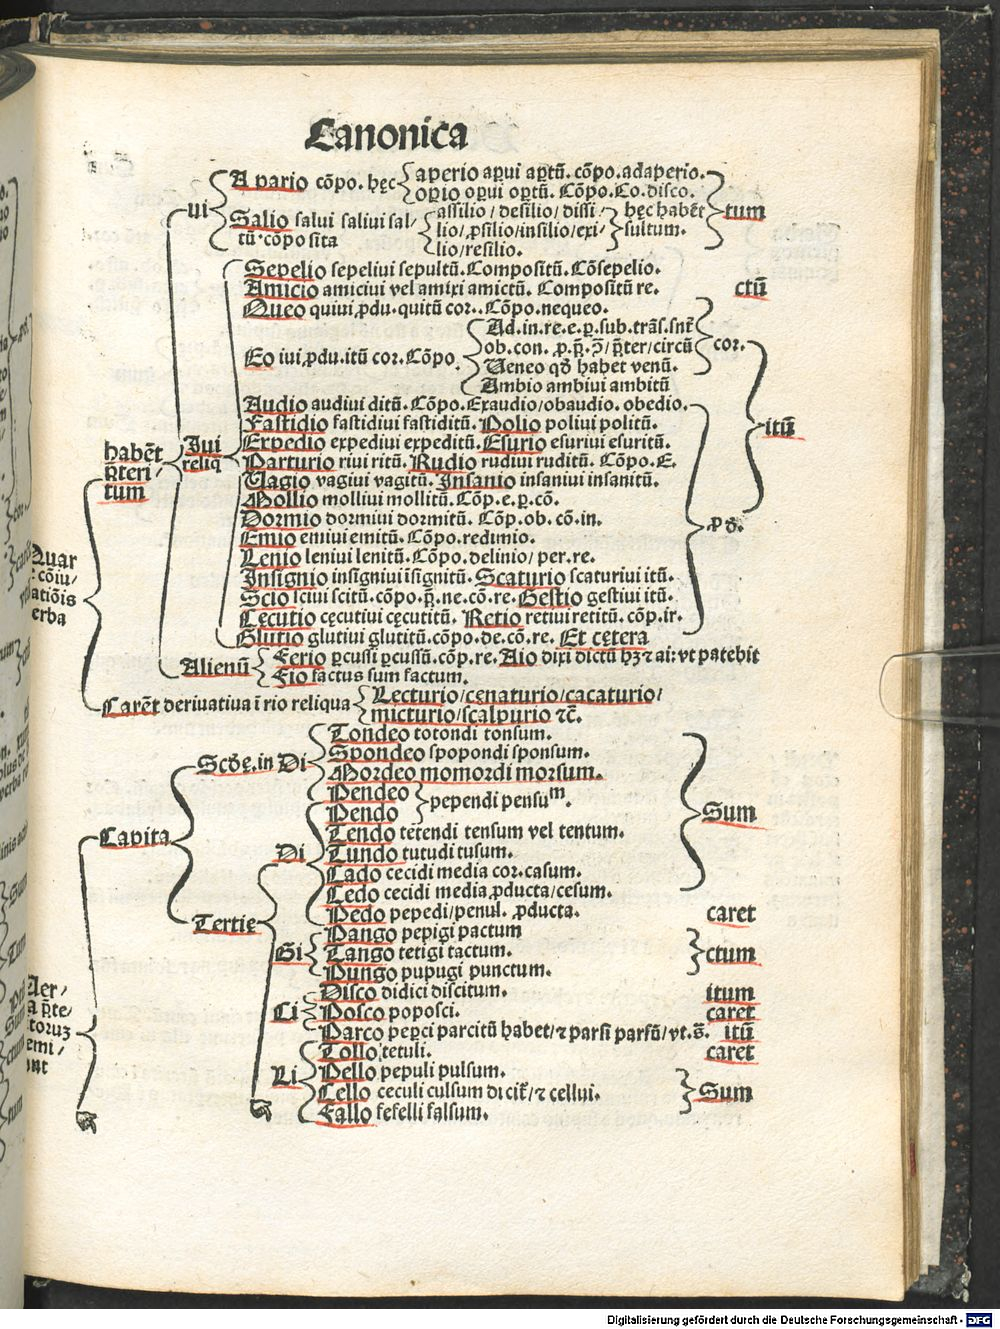 Canonica
A pario cōpo. hęc aperio aꝑui aꝑtū. cōpo. adaperio.
oꝑio oꝑui oꝑtū. Cōpo. Co. disco.
ui
Salio salui saliui sal/ assilio/ desilio/ dissi/ hęc habēt tum
tū. cōposita lio/ ꝓsilio/ insilio/ exi/ sultum.
lio/ resilio.
Sepelio sepeliui sepultū. Compositū. Cōsepelio.
Amicio amiciui vel amixi amictū. Compositū re. ctū
Queo quiui ꝓdu. quitū cor. Cōpo. nequeo.
Ad. in. re. e. ꝑ. sub. trās. snt̄
Eo iui ꝓdu. itū cor. Cōpo. ob. con. ꝓ. p̄. ɔ̄/ p̄ter/ circū cor.
Ueneo qd̄ habet venū.
Ambio ambiui ambitū
Audio audiui ditū. Cōpo. Exaudio/ obaudio. obedio.
Fastidio fastidiui fastiditū. Polio poliui politū. itū
habēt p̄teri/ tum
Iui reliq
Expedio expediui expeditū. Esurio esuriui esuritū.
Parturio riui ritū. Rudio rudiui ruditū. Cōpo. E.
Uagio vagiui vagitū. Insanio insaniui insanitū.
Mollio molliui mollitū. Cōp. e. ꝑ. cō.
Dormio dormiui dormitū. Cōp. ob. cō. in.
ꝓ d̄.
Emio emiui emitū. Cōpo. redimio.
Lenio leniui lenitū. Cōpo. delinio/ per. re.
Insignio insigniui īsignitū. Scaturio scaturiui itū.
Scio sciui scitū. cōpo. p̄. ne. cō. re. Gestio gestiui itū.
Cecutio cęcutiui cęcutitū. Retio retiui retitū. cōp. ir.
Glutio glutiui glutitū. cōpo. de. cō. re. Et cętera
Quar
cōiu/
atiōis
erba
Alienū Ferio ꝑcussi ꝑcussū. cōp. re. Aio dixi dictū hꝫ ⁊ ai: vt patebit
Fio factus sum factum.
Carēt deriuatiua ī rio reliqua Lecturio/ cęnaturio/ cacaturio/
micturio/ scalpurio ⁊c̄.
Capita
Scd̄ę, in Di
Tondeo totondi tonsum.
Spondeo spopondi sponsum.
Mordeo momordi morsum.
Pendeo
Pendo pependi pensuᵐ.
Sum
Tertię
Di
Tendo tetendi tensum vel tentum.
Tundo tutudi tusum.
Cado cecidi media cor. casum.
Cedo cecidi media ꝓducta/ cesum.
Pedo pepedi/ penul. ꝓducta. caret
Gi
Pango pepigi pactum
Tango tetigi tactum. ctum
Pungo pupugi punctum.
Ci
Disco didici discitum. itum
Posco poposci. caret
Parco peꝑci parcitū habet/ ⁊ parsi parsū/ vt. s̄. itū
Li
Tollo tetuli. caret
Pello pepuli pulsum.
Cello ceculi culsum di cit̄/ ⁊ cellui. Sum
Fallo fefelli falsum.
Digitalisierung gefördert durch die Deutsche Forschungsgemeinschaft - DFG